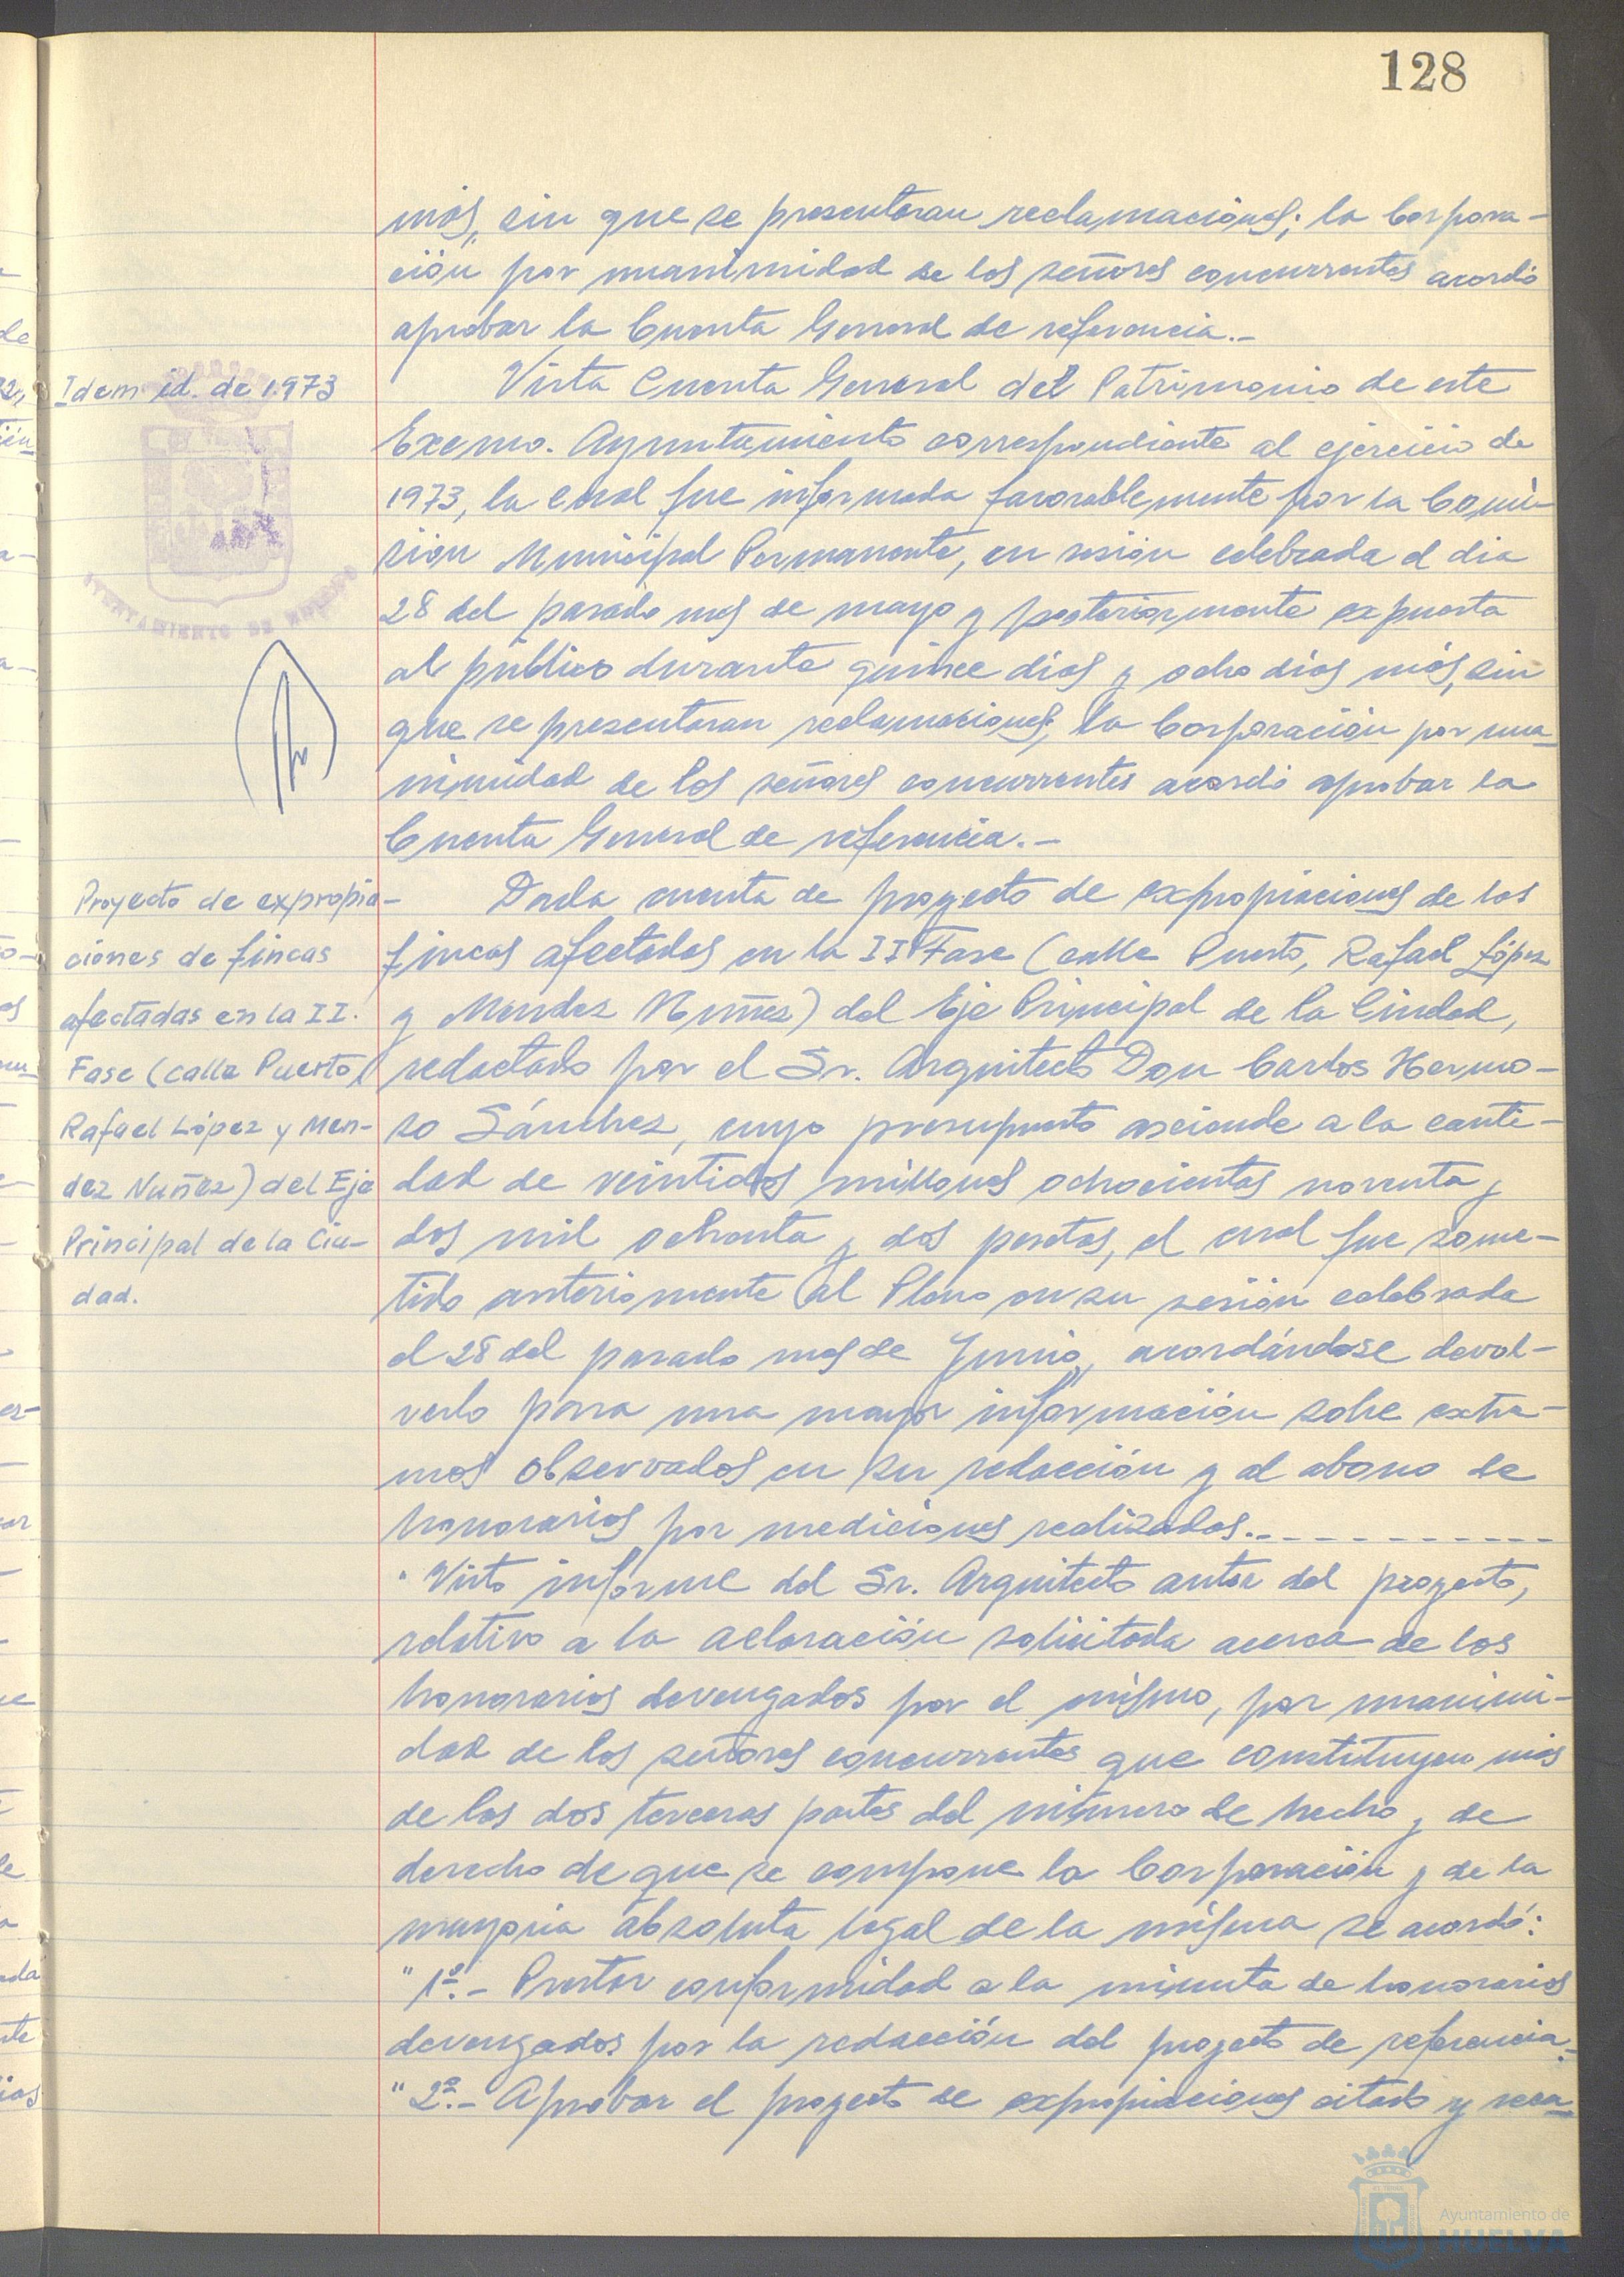 128
más, sin que se presentaran reclamaciones; la Corpora-
ción por unanimidad de los señores concurrentes acordó
aprobar la Cuenta General de referencia.-
Idem id. de 1.973
Vista Cuenta General del Patrimonio de este
Excmo. Ayuntamiento correspondiente al ejercicio de
1973, la cual fue informada favorablemente por la Comi-
sión Municipal Permanente, en sesión celebrada el dia
28 del pasado mes de mayo y posteriormente expuesta
al público durante quince días y ocho días más, sin
que se presentaran reclamaciones; la Corporación por una-
nimidad de los señores concurrentes acordó aprobar la
Cuenta General de referencia.-
AYUNTAMIENTO DE HUELVA
Proyecto de expropia-
ciones de fincas
afectadas en la II.
Fase (calle Puerto,
Rafael López y Men-
dez Nuñez) del Eje
Principal de la Ciu-
dad.
Dada cuenta de proyecto de expropiaciones de las
fincas afectadas en la II Fase (calle Puerto, Rafael López
y Mendez Nuñez) del Eje Principal de la Ciudad,
redactado por el Sr. Arquitecto Don Carlos Hermo-
so Sánchez, cuyo presupuesto asciende a la canti-
dad de veintidos millones ochocientas noventa y
dos mil ochenta y dos pesetas, el cual fue some-
tido anteriormente al Pleno en su sesión celebrada
el 28 del pasado mes de Junio, acordándose devol-
verlo para una mayor información sobre extre-
mos observados en su redacción y al abono de
honorarios por mediciones realizadas.- - - - - - - - - -
Visto informe del Sr. Arquitecto autor del proyecto,
relativo a la aclaración solicitada acerca de los
honorarios devengados por el mismo, por unanimi-
dad de los señores concurrentes que constituyen más
de las dos terceras partes del número de hecho y de
derecho de que se compone la Corporación y de la
mayoria absoluta legal de la misma se acordó:
"1º.- Prestar conformidad a la minuta de honorarios
devengados por la redacción del proyecto de referencia.-
"2º.- Aprobar el proyecto de expropiaciones citado y
Ayuntamiento de
HUELVA